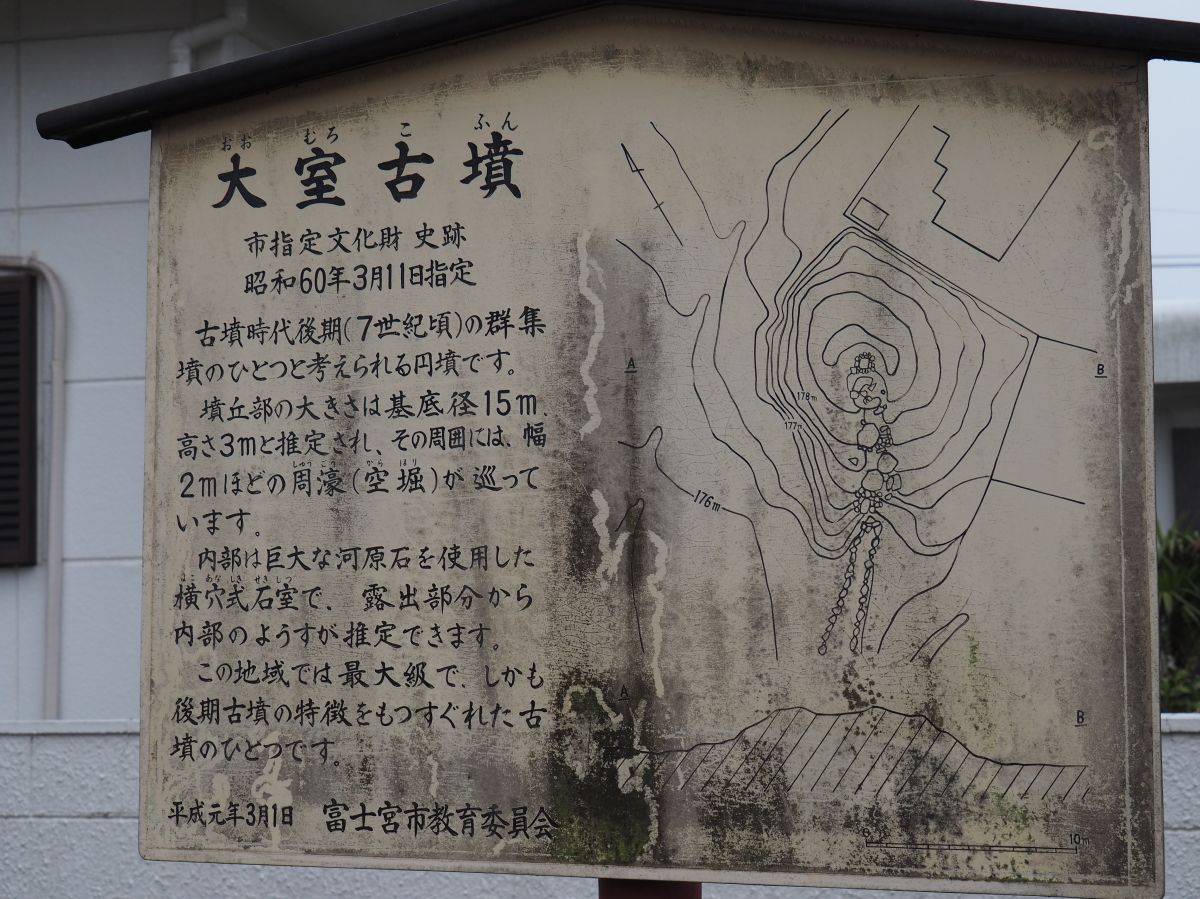 おお むろ こ ふん
大室古墳
市指定文化財 史跡
昭和60年3月11日指定
古墳時代後期(7世紀頃)の群集
墳のひとつと考えられる円墳です。
墳丘部の大きさは基底径15m、
高さ3mと推定され、その周囲には、幅
しゅう ごう から ほり
2mほどの周濠(空堀)が巡って
います。
内部は巨大な河原石を使用した
よこ あな しき せき しつ
横穴式石室で、露出部分から
内部のようすが推定できます。
この地域では最大級で、しかも
後期古墳の特徴をもつすぐれた古
墳のひとつです。
平成元年3月1日 富士宮市教育委員会
A
B
178m
177m
176m
A
B
0
10m